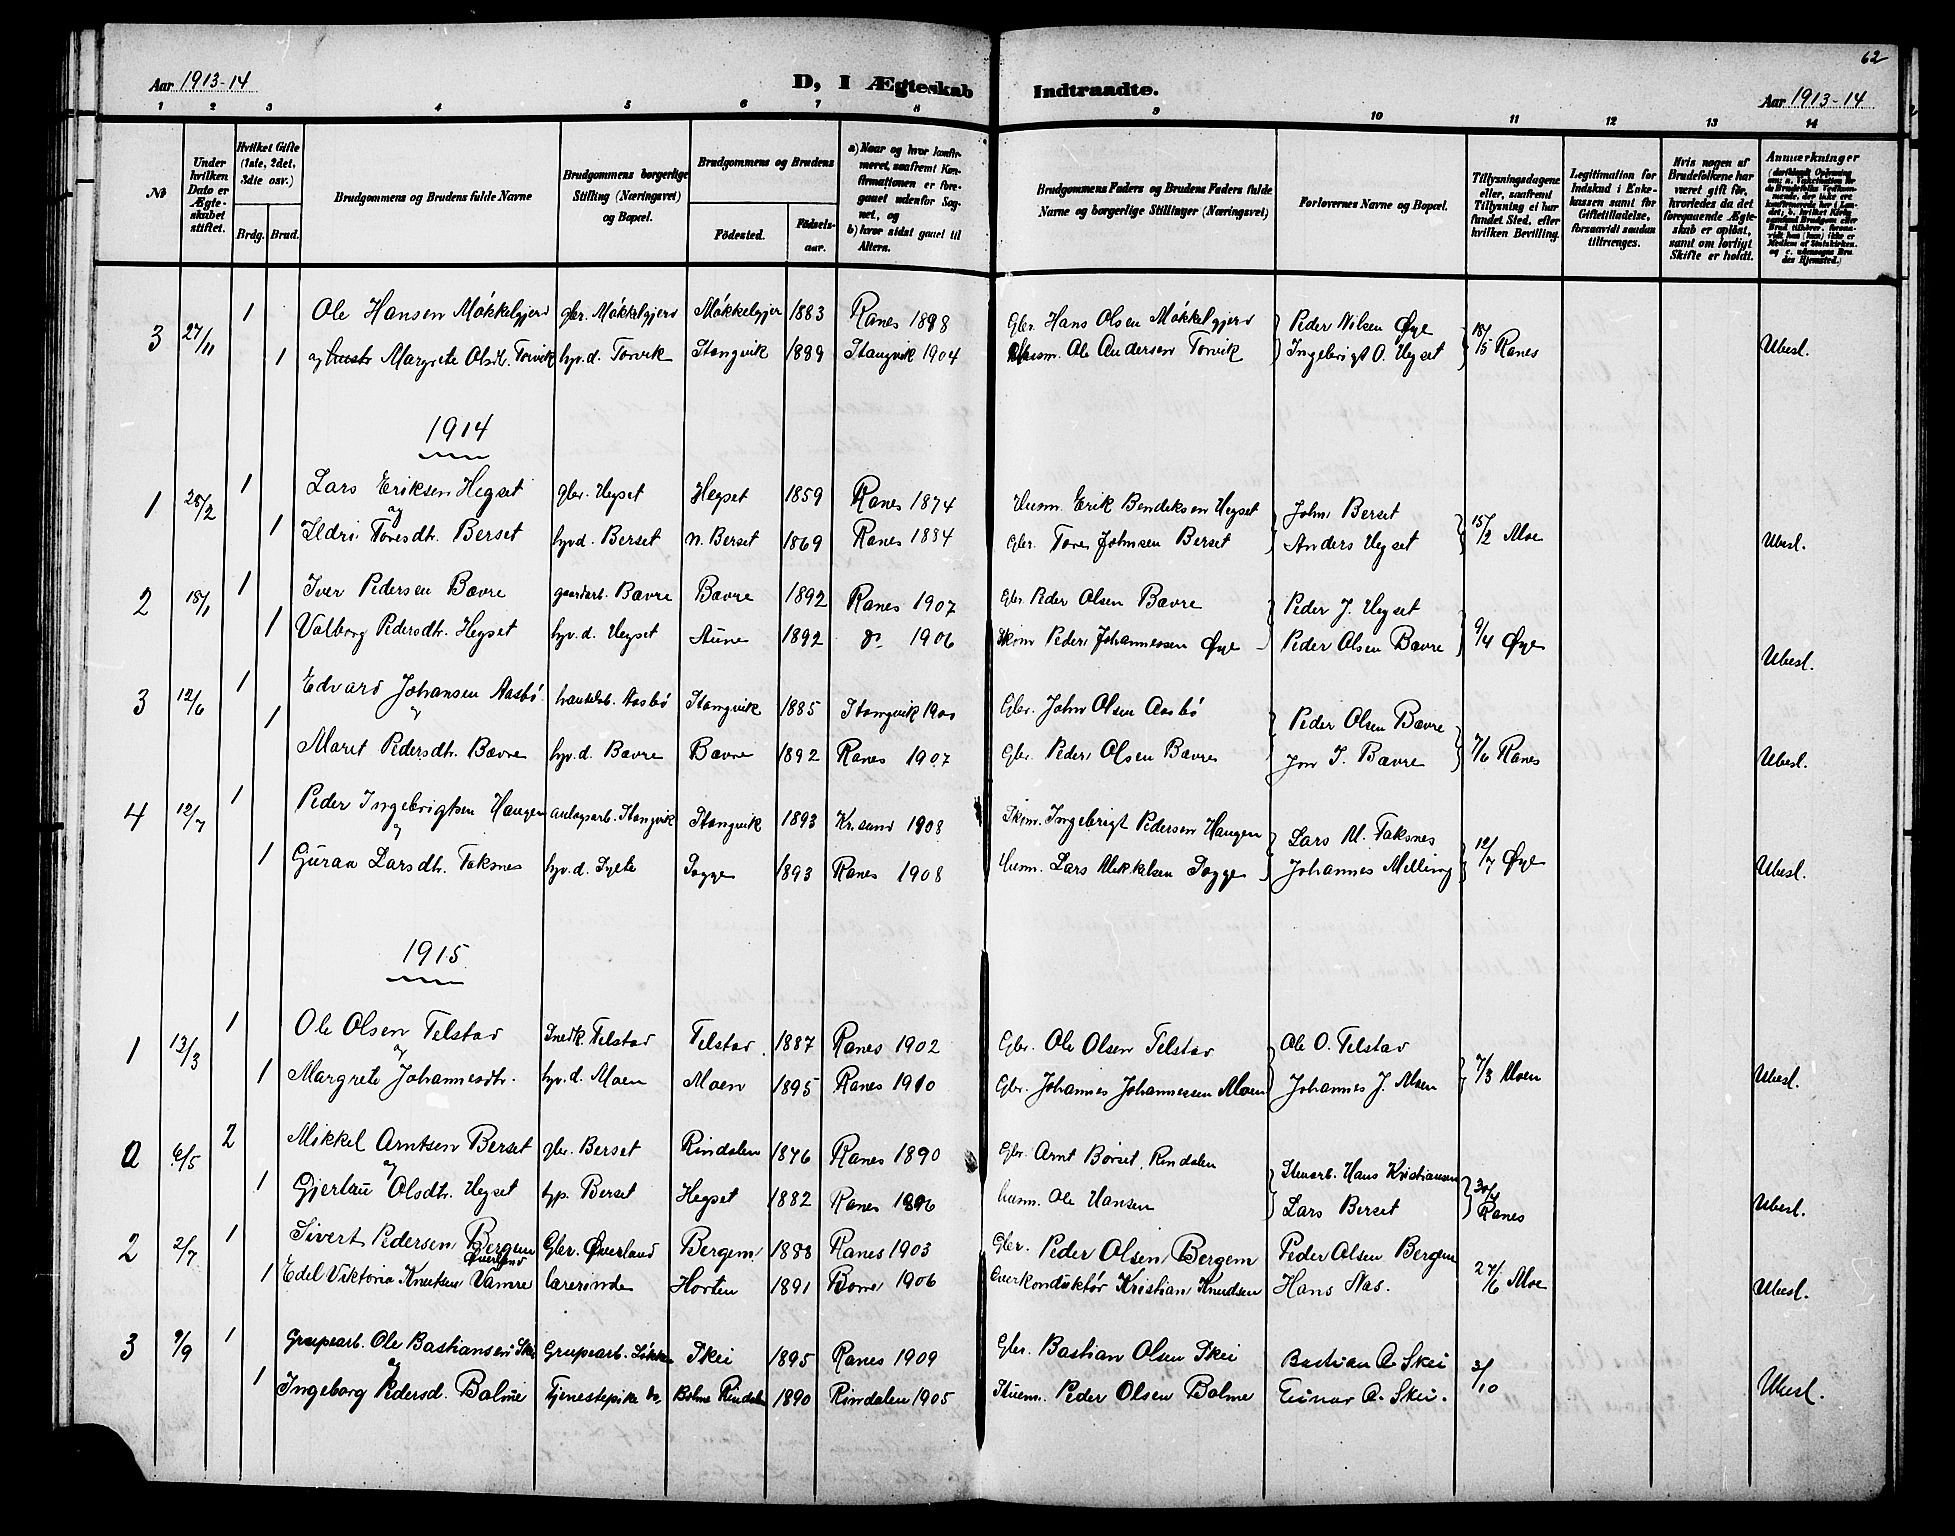 62
Aar 1913-14 D, I Ægteskab Indtraadte. Aar 1913-14
1 2 3 4 5 6 7 8 9 10 11 12 13 14
No
Under hvilken Dato er Ægteskabet stiftet.
Hvilket Gifte (1ste, 2det, 3die osv.)
Brdg. Brud.
Brudgommens og Brudens fulde Navne
Brudgommens borgerlige Stilling (Næringsvei) og Bopæl.
Brudgommens og Brudens
Fødested. Fødselsaar.
a) Naar og hvor konfirmeret, saafremt Konfirmationen er foregaaet udenfor Sognet, og
b) hvor sidst gaaet til Alters.
Brudgommens Faders og Brudens Faders fulde Navne og borgerlige Stillinger (Næringsvei)
Forlovernes Navne og Bopæl.
Tillysningsdagene eller, saafremt Tillysning ei har fundet Sted, efter hvilken Bevilling.
Legitimation for Indskud i Enkekassen samt for Giftetilladelse, forsaavidt saadan tiltrænges.
Hvis nogen af Brudefolkene har været gift før, hvorledes da det foregaaende Ægteskab er opløst, samt om lovligt Skifte er holdt.
Anmærkninger
3 27/11 1 Ole Hansen Møkkelgjerd gbr. Møkkelgjerd Møkkelgjer 1883 Ranes 1898 Gbr. Hans Olsen Møkkelgjerd Peder Nilsen Øye 18/5 Ranes Ubesl.
1 og Margrete Olsdt. Torvik hyv.d. Torvik Stangvik 1889 Stangvik 1904 Husm. Ole Andersen Torvik Ingebrigt O. Hegset
1914
1 28/2 1 Lars Eriksen Hegset gbr. Hegset Hegset 1859 Ranes 1874 Husm. Erik Bendiksen Hegset John Berset 15/2 Moe Ubesl.
og
1 Ildri Toresdt. Berset hyvd. Berset n. Berset 1869 Ranes 1884 Gbr. Tore Johnsen Berset Anders Hegset
2 18/1 1 Iver Pedersen Bævre gaardarb. Bævre Bævre 1892 Ranes 1907 Gbr. Peder Olsen Bævre Peder J. Hegset 9/4 Øye Ubesl.
1 Valborg Pedersdt. Hegset hyv.d. Hegset Aune 1892 do 1906 Peder Johannessen Øye Peder Olsen Bævre
3 12/6 1 Edvard Johansen Aasbø Aasbø Stangvik 1885 Stangvik 1900 Gbr. John Olsen Aasbø Peder Olsen Bævre 7/6 Ranes Ubesl.
og
1 Marit Pedersdt. Bævre hyv.d. Bævre Bævre 1892 Ranes 1907 Gbr. Peder Olsen Bævre Jon I. Bævre
4 12/7 1 Peder Ingebrigtsen Haugen anlægsarb. Stangvik Stangvik 1893 Kr.sund 1908 Ingebrigt Pedersen Haugen Lars M. Faksnes 12/7 Øye Ubesl.
og
1 Guraa Larsdt. Faksnes hyv.d. 1893 Ranes 1908 husm. Lars Mikkelsen Johannes Melling
1915
1 13/3 1 Ole Olsen Telstad Snedk. Telstad Telstad 1887 Ranes 1902 Gbr. Ole Olsen Telstad Ole O. Telstad 7/3 Moen Ubesl.
og
1 Margrete Johannesdt. hyv.d. Moen Moen 1895 Ranes 1910 Gbr. Johannes Johannessen Moen Johannes J. Moen
6/5 2 Mikkel Arntsen Berset gbr. Berset Rindalen 1876 Ranes 1890 Gbr. Arnt Børset, Rindalen Hans Kristiansen 30/4 Ranes Ubesl.
og
1 Gjertau Olsdt. Hegset Berset Hegset 1882 Ranes 1896 husm. Ole Hansen Lars Berset
2 2/7 1 Sivert Pedersen Bergem Øverland Gbr. Øverland Bergem 1888 Ranes 1903 Gbr. Peder Olsen Bergem Peder Olsen Bergem 27/6 Moe Ubesl.
1 Edel Viktoria Knutsen lærerinde Horten 1891 Borre 1906 Overkonduktør Kristian Knudsen Hans Nas.
3 9/9 1 Grupearb. Ole Bastiansen Skei Grupearb. Løkken Skei 1895 Ranes 1909 Gbr. Bastian Olsen Skei Bastian O. Skei 3/10 Ubesl.
og
1 Ingeborg Pedersd. Bolme Tjenestepike Bolme Rindalen 1890 Rindalen 1905 Peder Olsen Bolme Einar O. Skei.